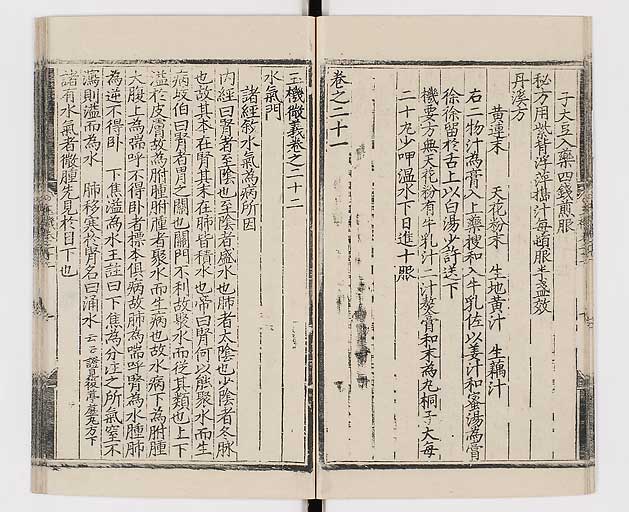 子大豆入藥四錢煎服
秘方用紫背浮萍搗汁每頓服半盞效
丹溪方
黄連末 天花粉末 生地黄汁 生藕汁
右二物汁為膏入上藥搜和入牛乳佐以姜汁和蜜湯為膏
徐徐留於舌上以白湯少許送下
機要方無天花粉有牛乳汁二汁熬膏和末為丸桐子大每
二十丸少呷温水下日進十服
卷之二十一
玉機微義卷之二十二
水氣門
諸經敘水氣為病所因
内經曰腎者至陰也至陰者盛水也肺者太陰也少陰者冬脉
也故其本在腎其末在肺皆積水也帝曰腎何以能聚水而生
病岐伯曰腎者胃之關也關門不利故聚水而從其類也上下
溢於皮膚故為胕腫胕腫者聚水而生病也故水病下為胕腫
大腹上為喘呼不得卧者標本俱病故肺為喘呼腎為水腫肺
為逆不得卧 下焦溢為水王註曰下焦為分注之所氣窒不
瀉則溢而為水 肺移寒於腎名曰涌水
諸有水氣者微腫先見於目下也